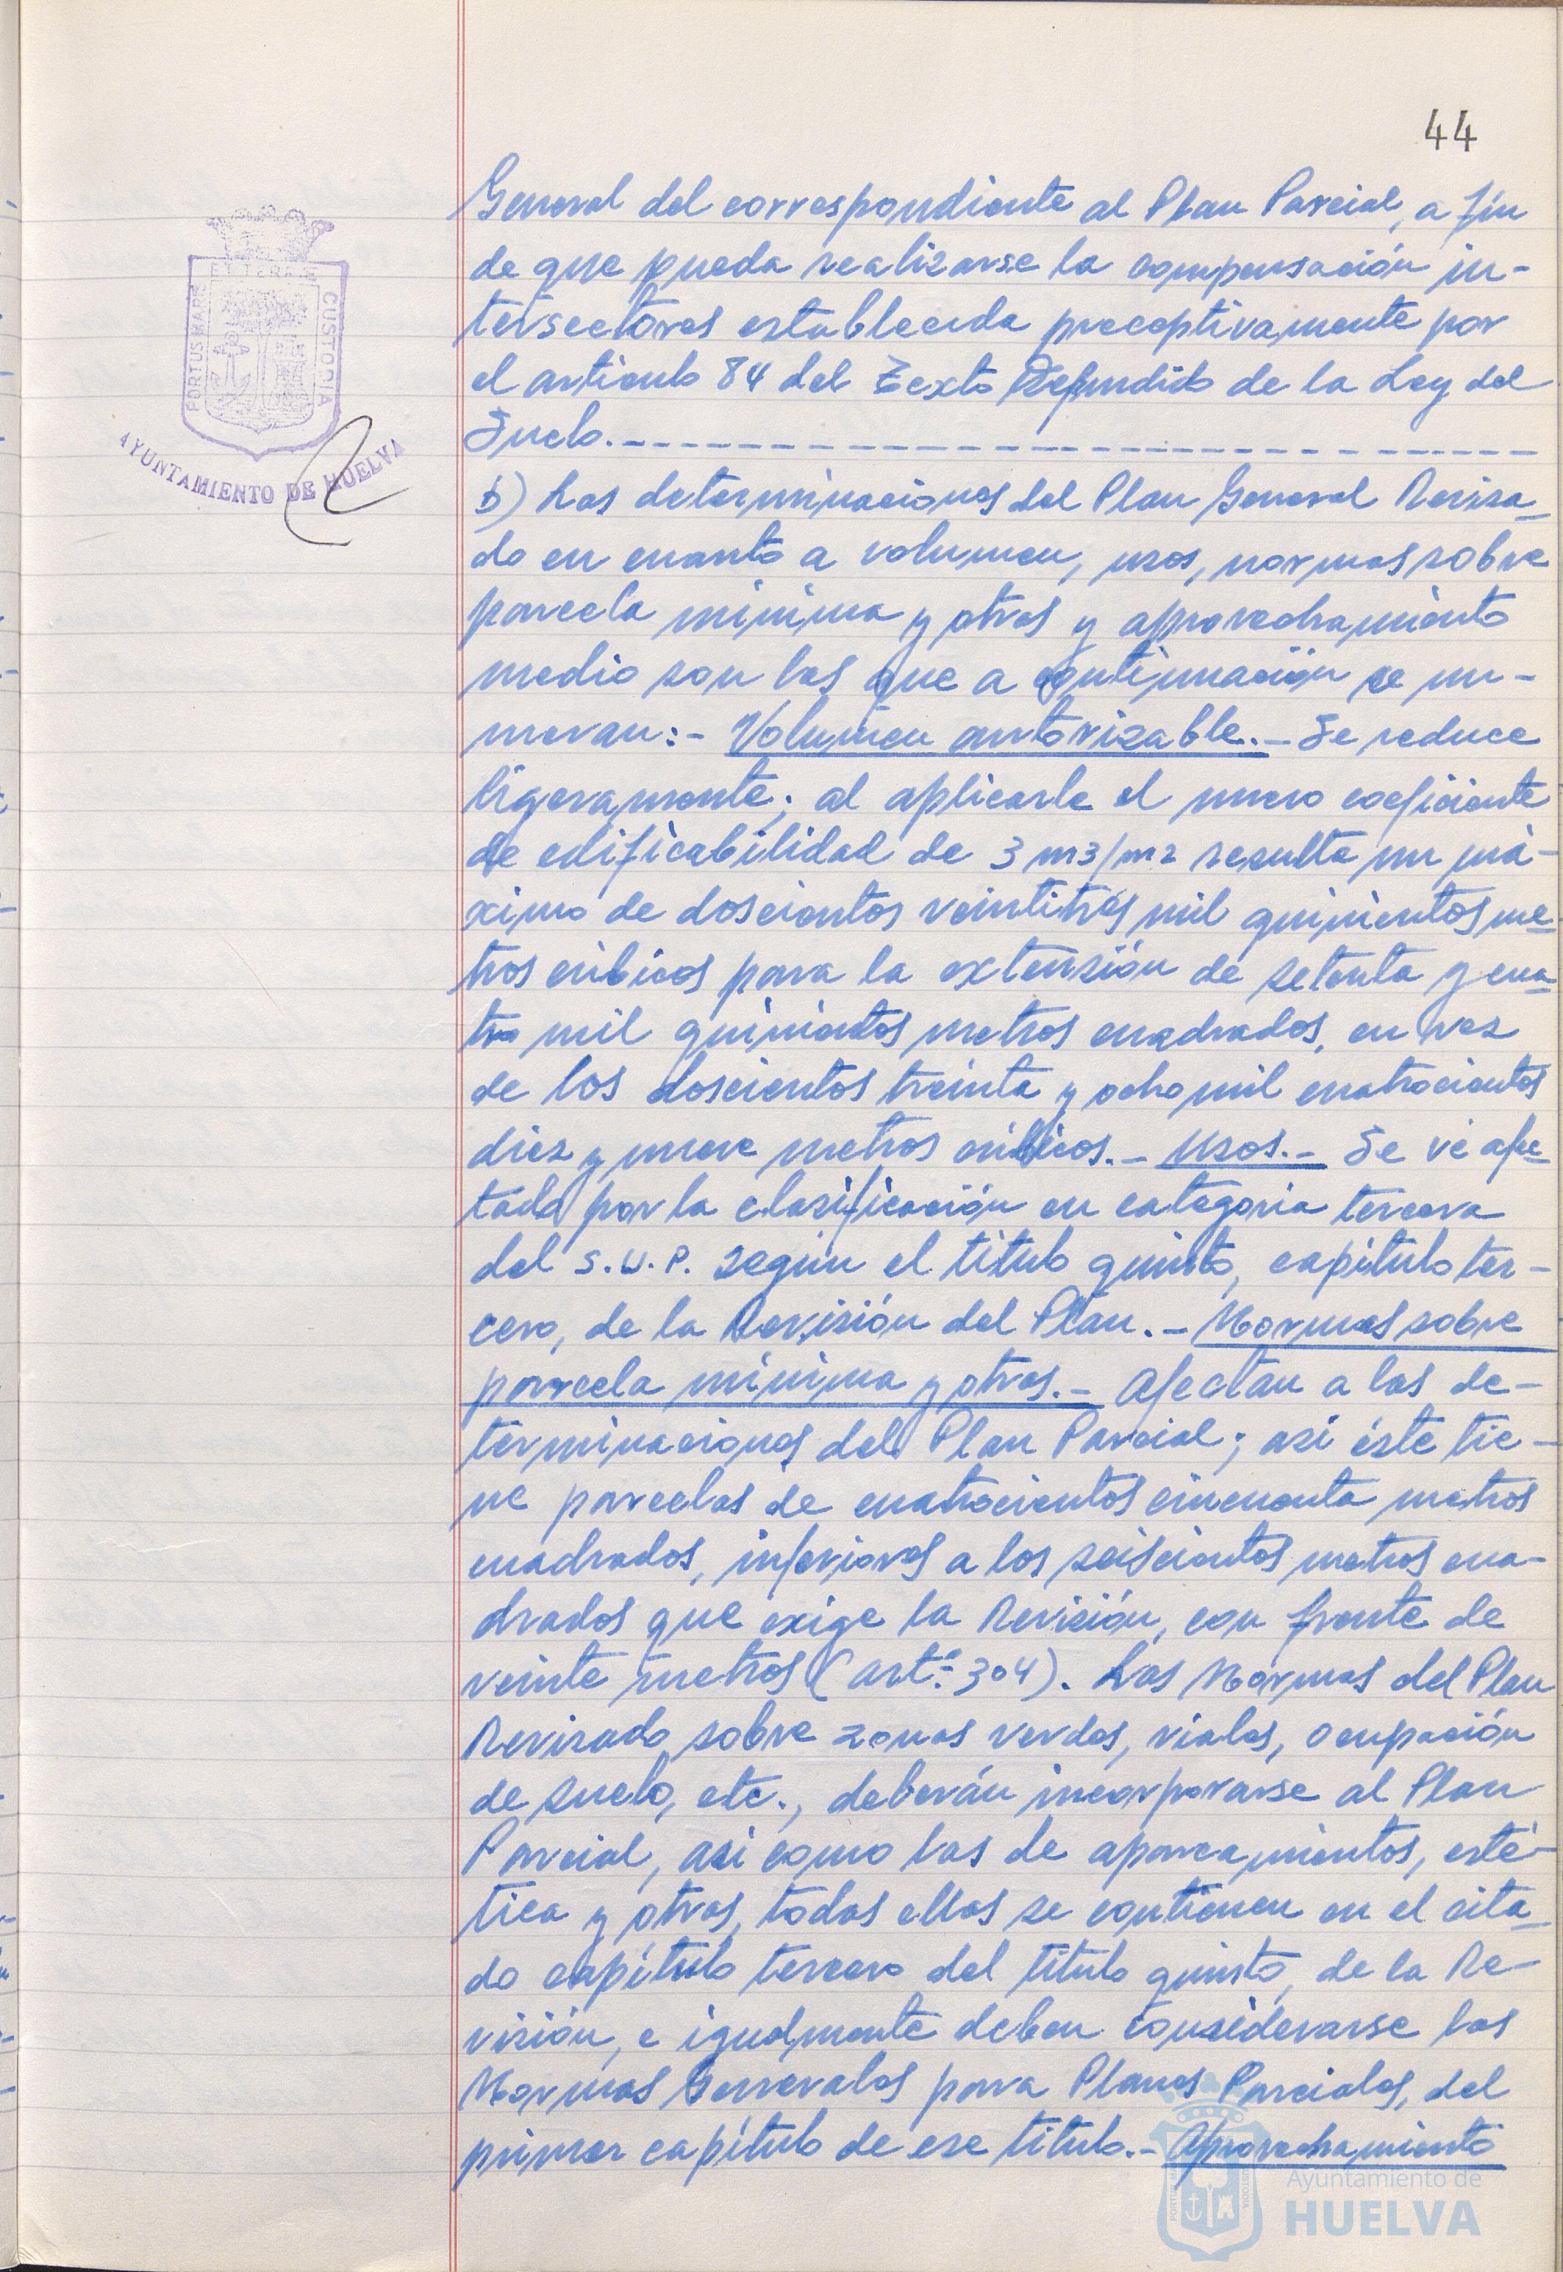 44
General del correspondiente al Plan Parcial, a fin
de que pueda realizarse la compensación in-
tersectores establecida preceptivamente por
el artículo 84 del Texto Refundido de la Ley del
Suelo.
b) Las determinaciones del Plan General Revisa-
do en cuanto a volumen, usos, normas sobre
parcela mínima y otras y aprovechamiento
medio son las que a continuación se nu-
meran:- Volumen autorizable.- Se reduce
ligeramente; al aplicarle el nuevo coeficiente
de edificabilidad de 3 m3/m2 resulta un má-
ximo de doscientos veintitrés mil quinientos me-
tros cúbicos para la extensión de setenta y cua-
tro mil quinientos metros cuadrados, en vez
de los doscientos treinta y ocho mil cuatrocientos
diez y nueve metros cúbicos.- Usos.- Se vé afec-
tada por la clasificación en categoría tercera
del S.U.P. según el título quinto, capítulo ter-
cero, de la Revisión del Plan.- Normas sobre
parcela mínima y otras.- Afectan a las de-
terminaciones del Plan Parcial; así éste tie-
ne parcelas de cuatrocientos cincuenta metros
cuadrados, inferiores a los seiscientos metros cua-
drados que exige la Revisión, con frente de
veinte metros (artº. 304). Las Normas del Plan
Revisado sobre zonas verdes, viales, ocupación
de suelo, etc., deberán incorporarse al Plan
Parcial, así como las de aparcamientos, esté-
tica y otras, todas ellas se contienen en el cita-
do capítulo tercero del título quinto, de la Re-
visión, e igualmente deben considerarse las
Normas Generales para Planes Parciales, del
primer capítulo de ese título.- Aprovechamiento
PORTUS MARIS
ET TERRAE
CUSTODIA
AYUNTAMIENTO DE HUELVA
Ayuntamiento de
HUELVA